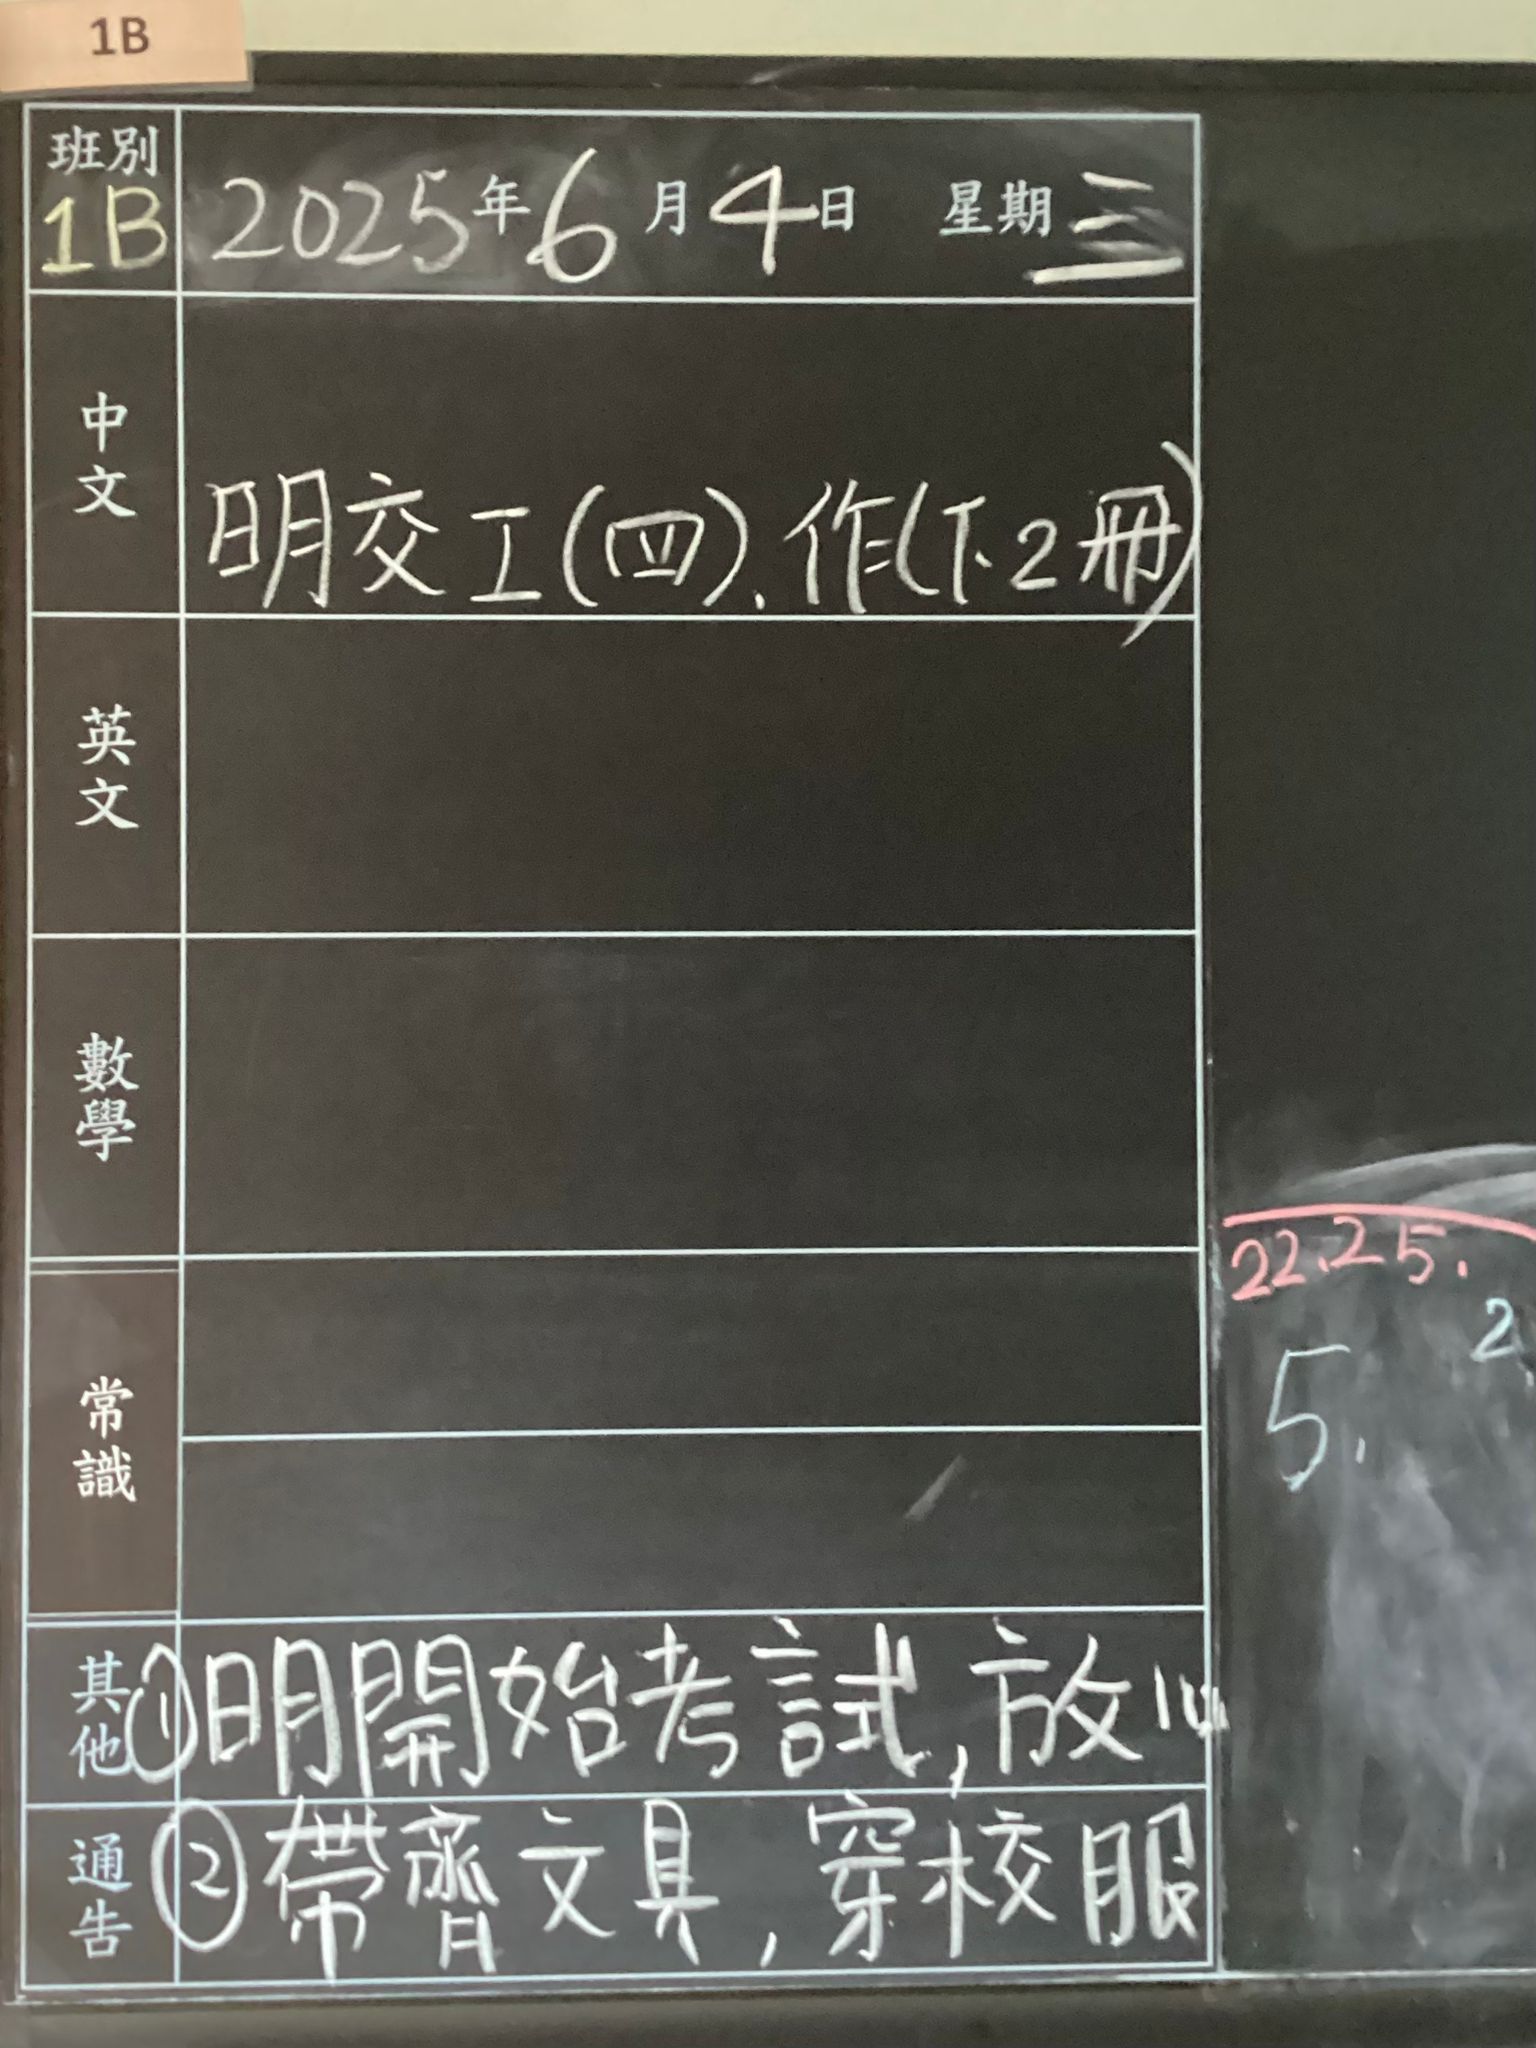 1B
班別
1B
2025年6月4日 星期三
中文
明交工(四).作(下2冊)
英文
數學
常識
其他
①明開始考試,放
通告
②帶齊文具,穿校服
22.25.
2
5.